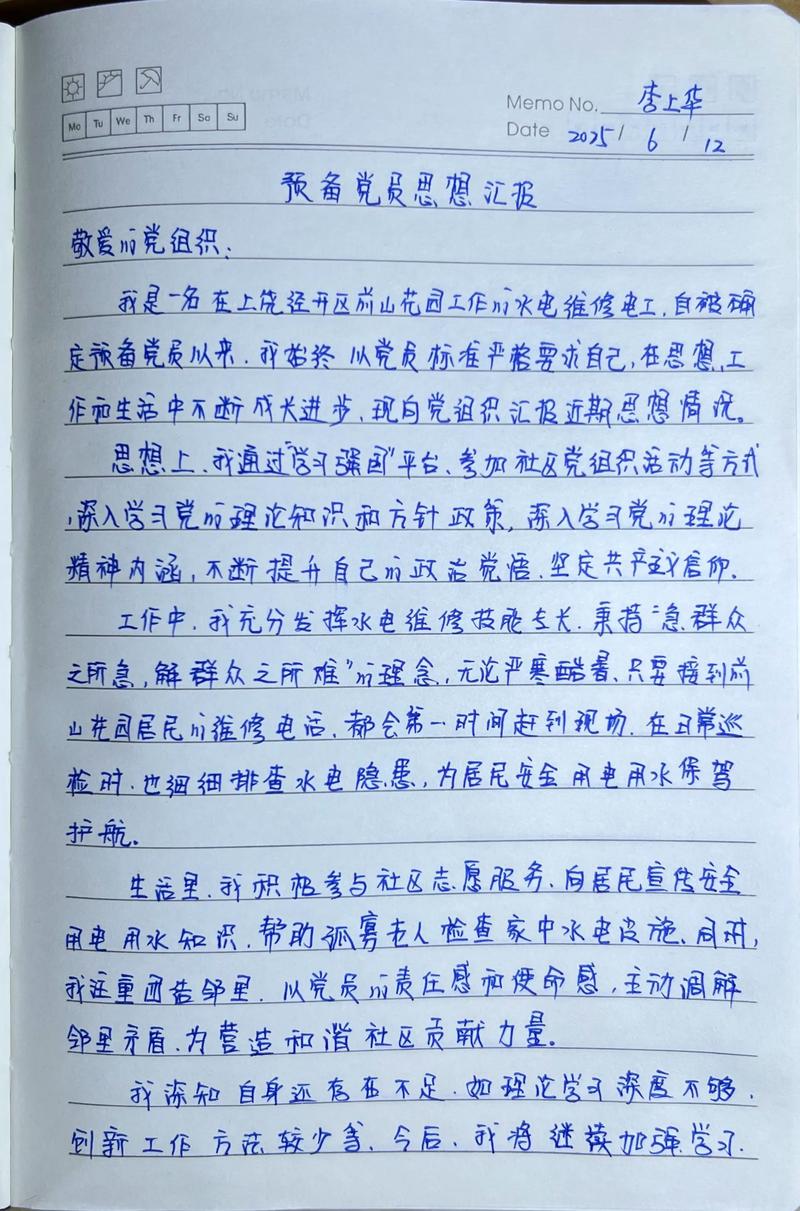 Memo No. 李上华
Mo Tu We Th Fr Sa Su
Date 2025/6/12
预备党员思想汇报
敬爱的党组织:
我是一名在上饶经开区前山花园工作的水电维修电工,自被确
定预备党员以来,我始终以党员标准严格要求自己,在思想、工
作和生活中不断成长进步,现向党组织汇报近期思想情况。
思想上,我通过“学习强国”平台、参加社区党组织活动等方式
,深入学习党的理论知识和方针政策,深入学习党的理论
精神内涵,不断提升自己的政治党悟,坚定共产主义信仰.
工作中,我充分发挥水电维修技能专长,秉持“急群众
之所急,解群众之所难”的理念,无论严寒酷暑、只要接到前
山花园居民的维修电话,都会第一时间赶到现场.在日常巡
检时,也细细排查水电隐患,为居民安全用电用水保驾
护航。
生活里,我积极参与社区志愿服务,向居民宣传安全
用电用水知识,帮助孤寡老人检查家中水电设施、同时,
我注重团结邻里,以党员的责任感和使命感,主动调解
邻里矛盾,为营造和谐社区贡献力量。
我深知自身还存在不足,如理论学习深度不够,
创新工作方法较少等、今后,我将继续加强学习.